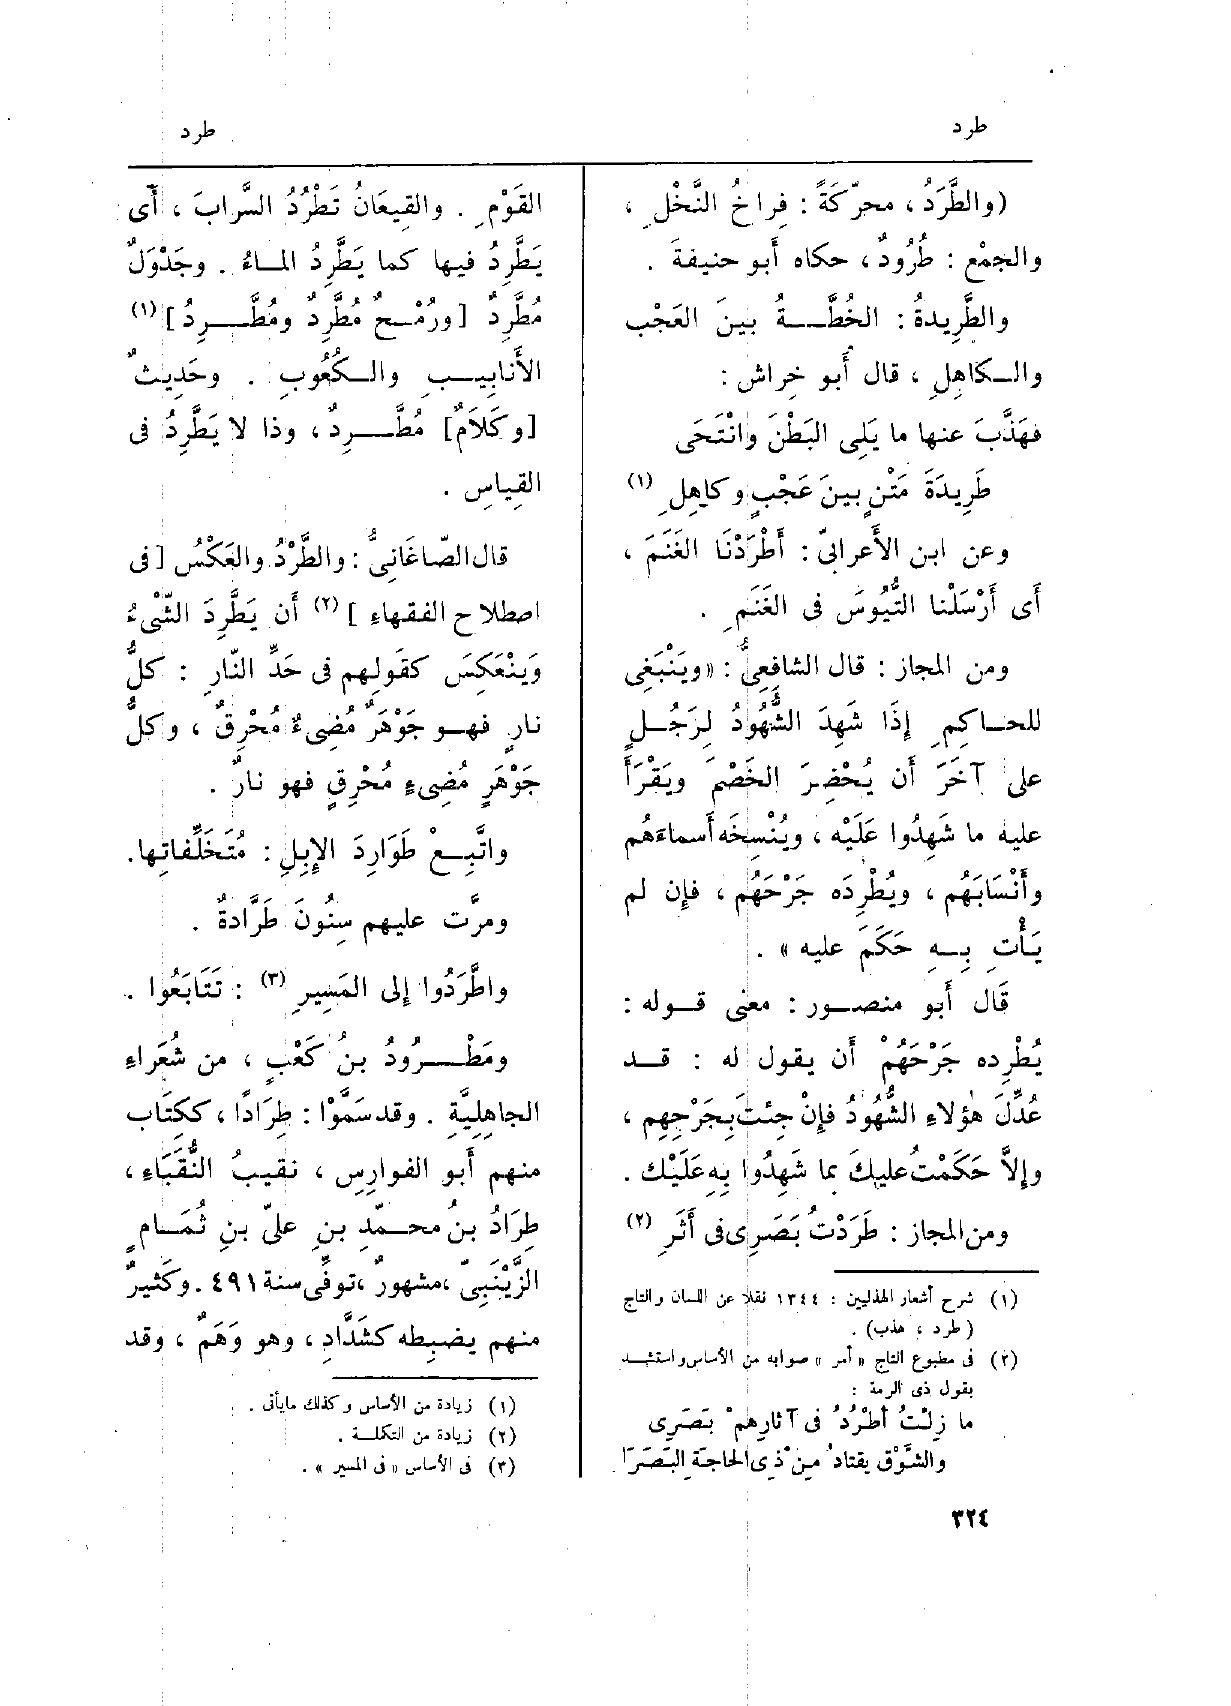 طرد
طرد
(والطَّرَدُ، محرّكَةً: فِراخُ النَّخْلِ،
والجمْع: طُرُودٌ، حكاه أَبو حنيفةَ .
والطَّرِيدةُ: الخُطَّــةُ بينَ العَجْب
والــكاهِلِ، قال أَبو خِراش :
فهَذَّبَ عنها ما يَلِى البَطْنَ وانْتَحَى
طَرِيدَةَ مَتْنٍ بينَ عَجْبٍ وكاهِلِ (١)
وعن ابن الأَعرابىّ: أَطْرَدْنَا الغَنَمَ ،
أَى أَرْسَلْنا التُّيُوسَ فى الغَنَمِ .
ومن المجاز : قال الشافعِىُّ : «ويَنْبَغِى
للحــاكِمِ إِذَا شَهِدَ الشُّهُودُ لِرَجُــلٍ
على آخَرَ أَن يُحْضِرَ الخَصْمَ ويَقْرَأَ
عليه ما شَهِدُوا عَلَيْه ، ويُنْسِخَه أَسماءَهُم
وأَنْسَابَهُم ، ويُطْرِدَه جَرْحَهُم ، فإِن لم
يَأْتِ بِــهِ حَكَمَ عليه » .
قَال أَبو منصــور : معنى قــوله :
يُطْرِده جَرْحَهُمْ أَن يقول له : قــد
عُدِّلَ هؤلاءِ الشُّهُودُ فإِنْ جِئتَ بِجَرْحِهِم ،
وإِلاَّ حَكَمْتُ عليكَ بما شَهِدُوا بِهِ عَلَيْك .
ومن المجاز : طَرَدْتُ بَصَرِى فى أَثَرِ (٢)
(١) شرح أشعار الهذليين : ١٣٤٤ نقلا عن اللسان والتاج
(طرد ، هذب) .
(٢) فى مطبوع التاج «أمر » صوابه من الأساس واستشهــد
بقول ذى الرمة :
ما زِلْتُ أطْرُدُ فى آثارِهمْ بَصَرِى
والشَّوْق يقتادُ مِنْ ذِى الحاجةِ البَصَرَا
القَوْمِ . والقِيعَانُ تَطْرُدُ السَّرابَ ، أَى
يَطَّرِدُ فيها كما يَطَّرِدُ المــاءُ . وجَدْوَلٌ
مُطَّرِدٌ [ورُمْــحٌ مُطَّرِدٌ ومُطَّــرِدُ] (١)
الأَنابِيــبِ والــكُعُوبِ . وحَدِيثٌ
[وكَلاَمٌ] مُطَّــرِدٌ ، وذا لا يَطَّرِدُ فى
القِياسِ .
قال الصّاغَانِىُّ : والطَّرْدُ والعَكْسُ [ فى
اصطلاح الفقهاء ] (٢) أَن يَطَّرِدَ الشَّىْءُ
وَيَنْعَكِسَ كقَولِهم فى حَدِّ النّارِ : كلُّ
نارٍ فهــو جَوْهَرٌ مُضِىءٌ مُحْرِقٌ ، وكلُّ
جَوْهَرٍ مُضِىءٍ مُحْرِقٍ فهو نارٌ .
واتَّبِــعْ طَوَارِدَ الإِبِلِ : مُتَخَلِّفاتِها.
ومرَّت عليهم سِنُونَ طَرَّادةٌ .
واطَّرَدُوا إِلى المَسِيرِ (٣) : تَتَابَعُوا .
ومَطْــرُودُ بنُ كَعْبٍ ، من شُعَراءِ
الجاهِلِيَّةِ . وقد سَمَّوْا : طِرَادًا ، ككِتَاب
منهم أَبو الفوارِس ، نقيبُ النُّقَبَاء ،
طِرَادُ بنُ محــمّدِ بنِ علىّ بنِ تُمَــامٍ
الزَّيْنَبِىّ ،مشهورٌ ،توفِّى سنة ٤٩١ . وكَثيرٌ
منهم يضبِطه كشَدَّادٍ ، وهو وَهَمٌ ، وقد
(١) زيادة من الأساس وكذلك مايأتى .
(٢) زيادة من التكملــة .
(٣) فى الأساس «فى المسير » .
٣٢٤